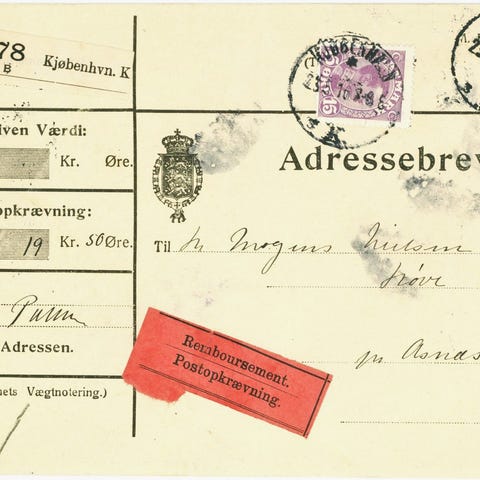 78
B
Kjøbenhvn. K
KJØBENHAVN
K
15
iven Værdi:
Kr. Øre.
opkrævning:
19 Kr. 50 Øre.
Adressebrev
Til Hr Mogens Nielsen
Høve
pr Asnæs
Palm
Adressen.
nets Vægtnotering.)
Remboursement.
Postopkrævning.